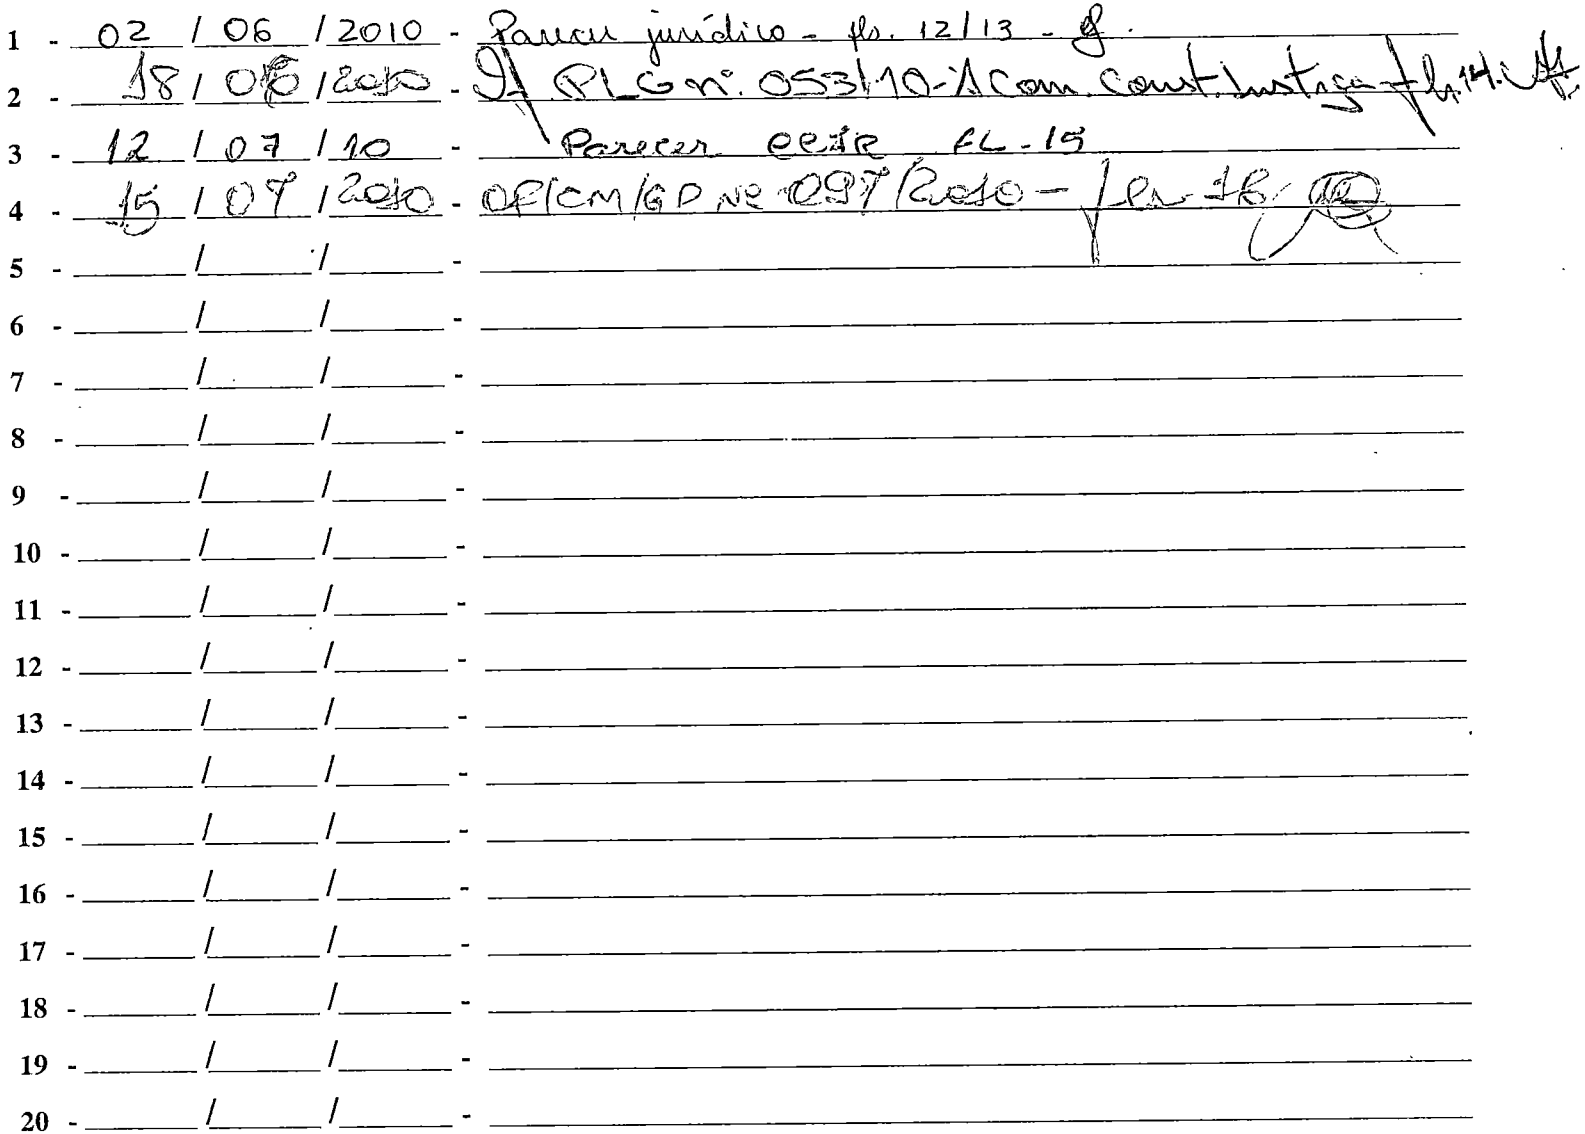 1 - 02 / 06 / 2010 - Parecer jurídico - fls. 12/13 -
2 - 18 / 06 / 2010 - PLG nº. 053/10 - À Com. Const. Justiça - fl. 14.
3 - 12 / 07 / 10 - Parecer CCJR FL - 15
4 - 15 / 07 / 2010 - OF/CM/GP Nº 097/2010 - fls. 16
5 - / / -
6 - / / -
7 - / / -
8 - / / -
9 - / / -
10 - / / -
11 - / / -
12 - / / -
13 - / / -
14 - / / -
15 - / / -
16 - / / -
17 - / / -
18 - / / -
19 - / / -
20 - / / -